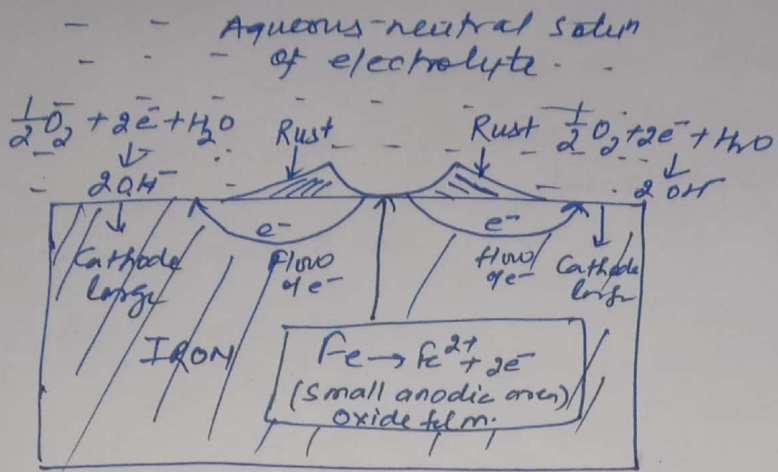 Aqueous-neutral soln
of electrolyte.
1/2 O₂ + 2e⁻ + H₂O
↓
2OH⁻
Rust
Rust
1/2 O₂ + 2e⁻ + H₂O
↓
2OH⁻
e⁻
e⁻
Cathode
large
Flow
of e⁻
flow
of e⁻
Cathode
large
IRON
Fe → Fe²⁺ + 2e⁻
(Small anodic area)
Oxide film.